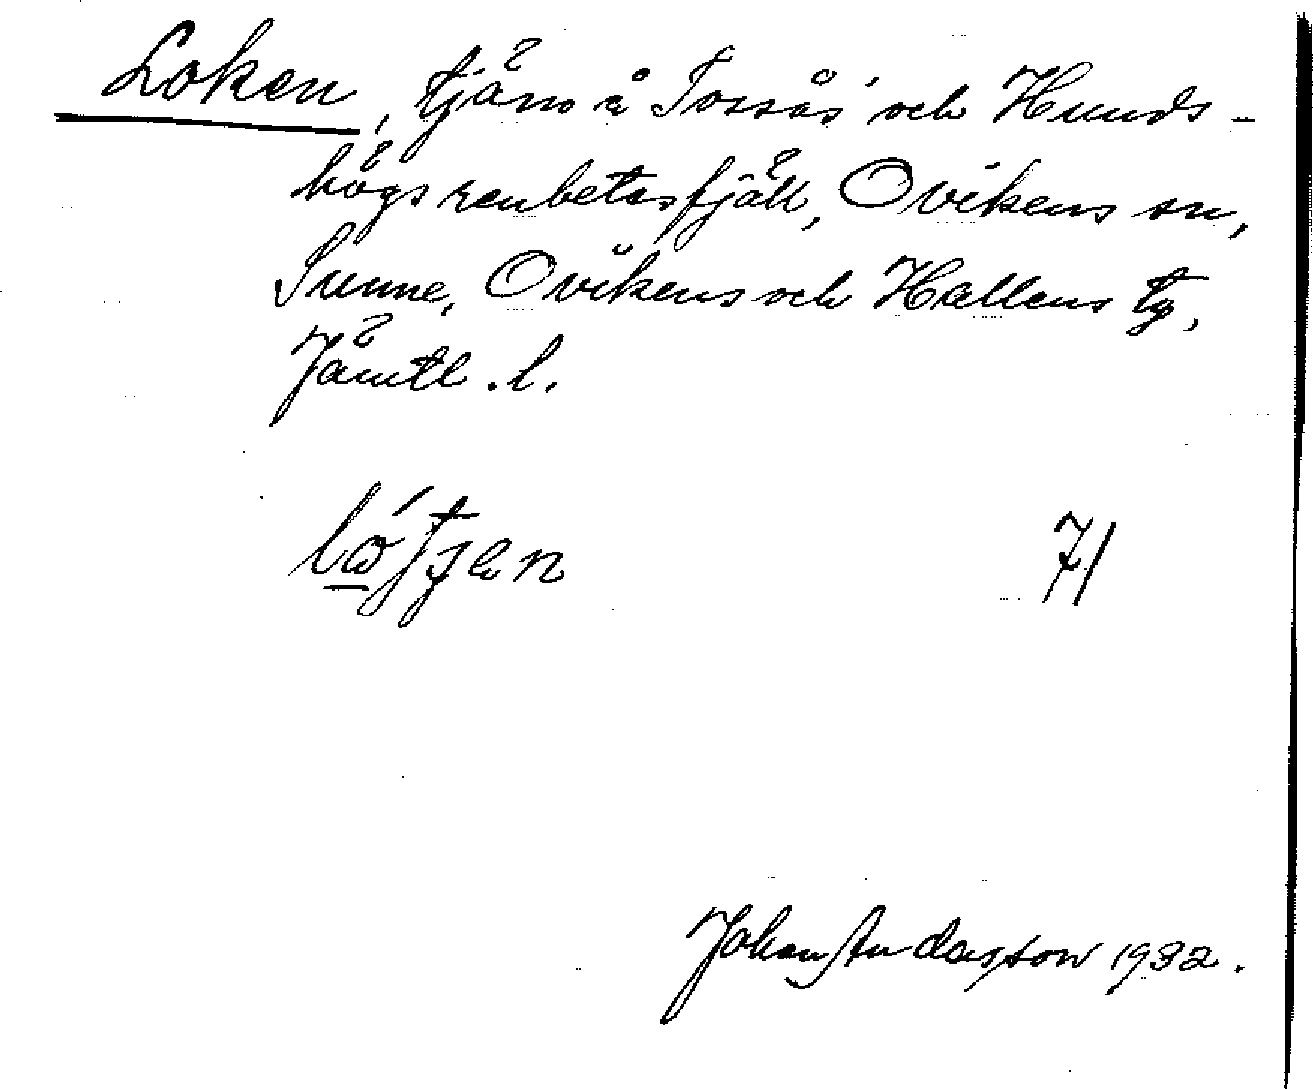 Loken, tjärn å Tossås och Hunds-
högs renbetesfjäll, Ovikens sn,
Sunne, Ovikens och Hallens tg,
Jämtl. l.
71
Johan Andersson 1932.